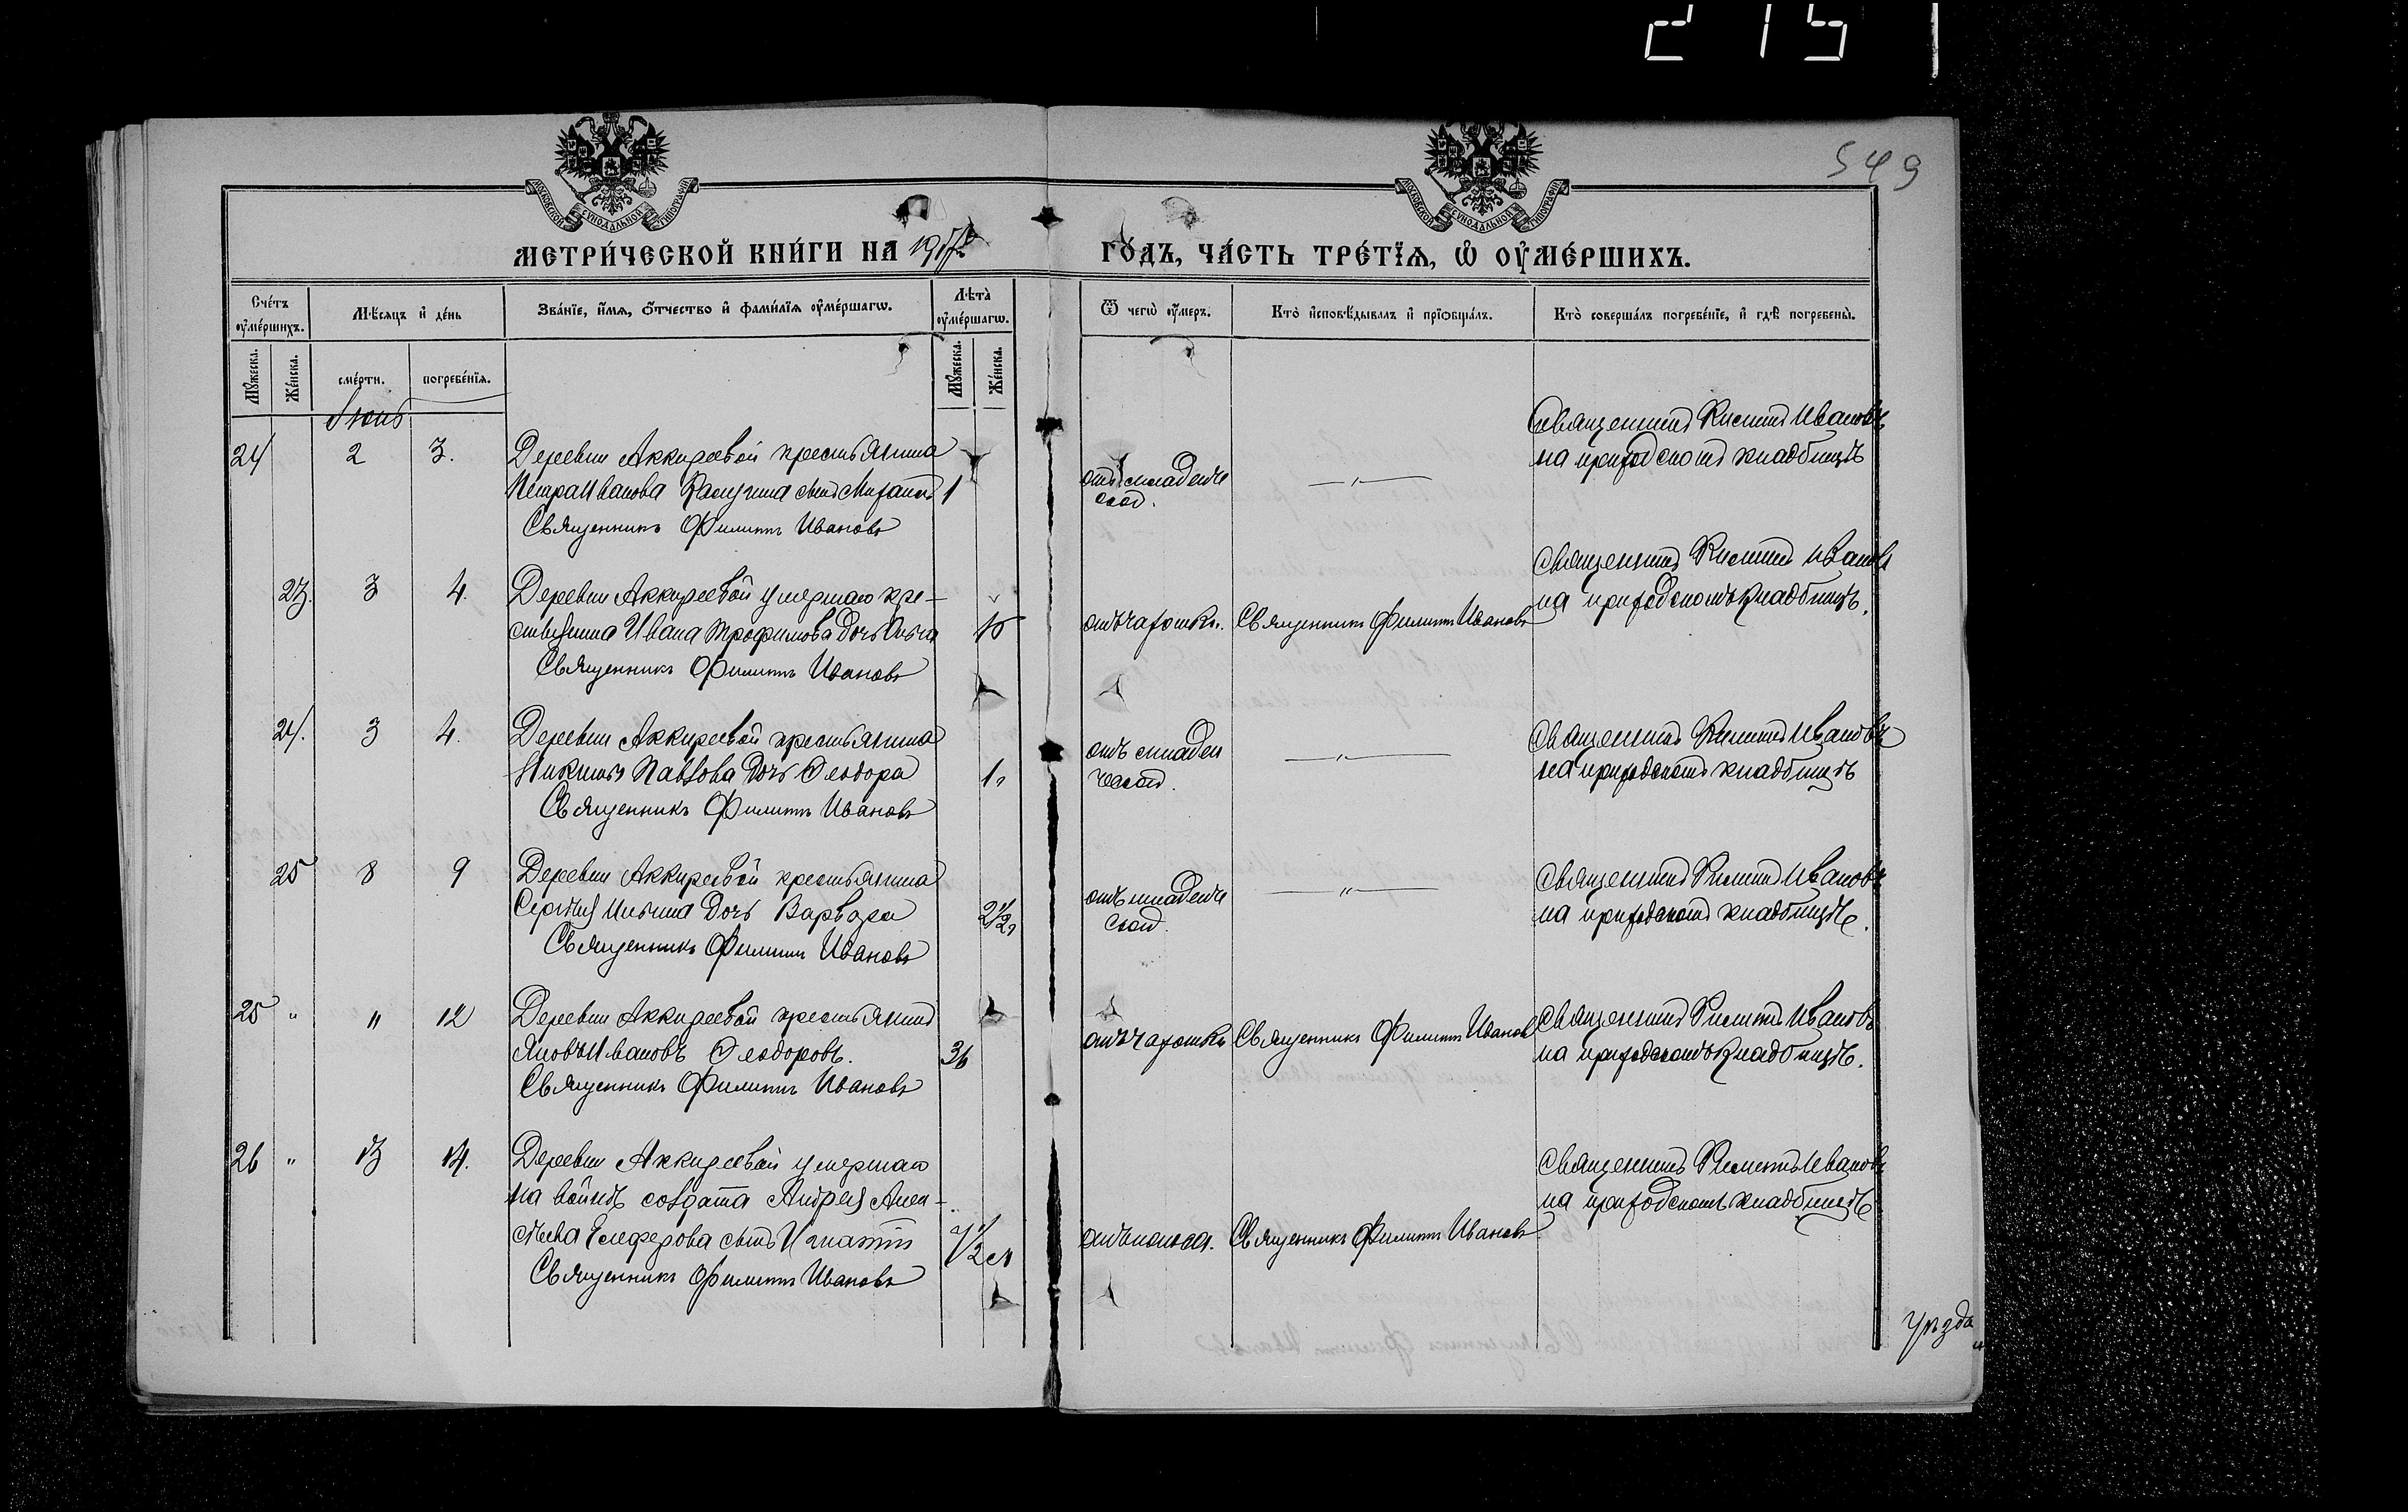 215
549
МОСКОВСКОЙ СѴНОДАЛЬНОЙ ТИПОГРАФІИ
МОСКОВСКОЙ СѴНОДАЛЬНОЙ ТИПОГРАФІИ
МЕТРИ́ЧЕСКОЙ КНИ́ГИ НА 191
ГО́ДЪ, ЧА́СТЬ ТРЕ́ТЇѦ, Ѽ ОУ҆МЕ́РШИХЪ.
Сче́тъ оу҆ме́ршихъ.
Мѣ́сяцъ и҆ де́нь
Зва́нїе, и҆́мѧ, ѻ҆́тчество и҆ фами́лїѧ оу҆ме́ршагѡ.
Лѣ́та̀ оу҆ме́ршагѡ.
Ѿ чегѡ̀ оу҆́меръ.
Кто̀ и҆сповѣ́дывалъ и҆ прїѡбща́лъ.
Кто̀ соверша́лъ погребе́нїе, и҆ гдѣ̀ погребены̀.
Мꙋ́жеска.
Же́нска.
сме́рти.
погребе́нїѧ.
Мꙋ́жеска.
Же́нска.
Іюнь
24 2 3. Деревни Аккиреевой крестьянина
Петра Иванова сынъ 1
Священникъ Филиппъ Ивановъ
отъ младенче
ской.
—„—
Священникъ Филиппъ Ивановъ
на приходскомъ кладбищѣ
23. 3 4. Деревни Аккиреевой умершаго кре-
стьянина Ивана Трофимова дочь 15
Священникъ Филиппъ Ивановъ
отъ чахотки.
Священникъ Филиппъ Ивановъ
Священникъ Филиппъ Ивановъ
на приходскомъ кладбищѣ.
24. 3 4. Деревни Аккиреевой крестьянина
Никиты Павлова дочь Ѳеодора 1„
Священникъ Филиппъ Ивановъ
отъ младен
ческой.
—„—
Священникъ Филиппъ Ивановъ
на приходскомъ кладбищѣ
25 8 9 Деревни Аккиреевой крестьянина
Сергѣя Ильина дочь Варвара 2½
Священникъ Филиппъ Ивановъ
отъ младенче
ской.
—„—
Священникъ Филиппъ Ивановъ
на приходскомъ кладбищѣ.
25 „ „ 12 Деревни Аккиреевой крестьянинъ
Яковъ Ивановъ Ѳеодоровъ. 36
Священникъ Филиппъ Ивановъ
отъ чахотки
Священникъ Филиппъ Ивановъ
Священникъ Филиппъ Ивановъ
на приходскомъ кладбищѣ.
26 „ 13 14. Деревни Аккиреевой умершаго
на войнѣ солдата Андрея Алек-
сѣева Елеферова сынъ Игнатій
Священникъ Филиппъ Ивановъ
Священникъ Филиппъ Ивановъ
Священникъ Филиппъ Ивановъ
на приходскомъ кладбищѣ
уѣзда